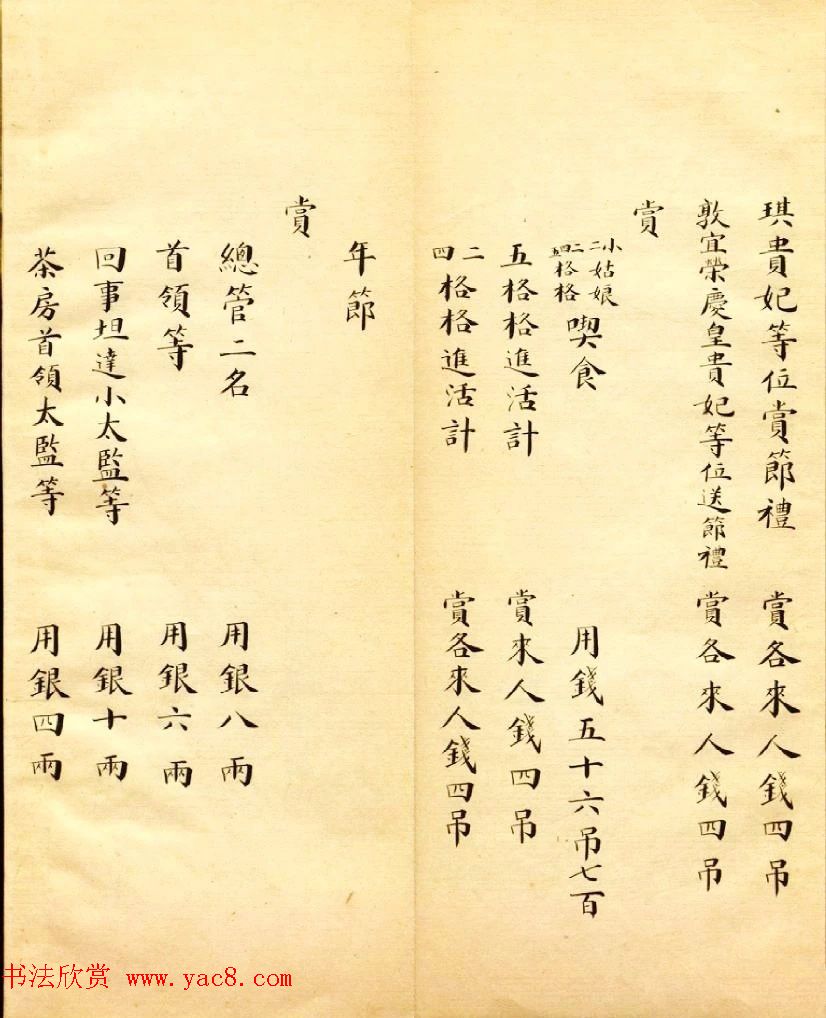 琪貴妃等位賞節禮 賞各來人錢四吊
敦宜榮慶皇貴妃等位送節禮 賞各來人錢四吊
賞
小二姑娘 二四五格格 喫食 用錢五十六吊七百
五格格進活計 賞來人錢四吊
二四格格進活計 賞各來人錢四吊
年節
賞
總管二名 用銀八兩
首領等 用銀六兩
回事坦達小太監等 用銀十兩
茶房首領太監等 用銀四兩
书法欣赏 www.yac8.com